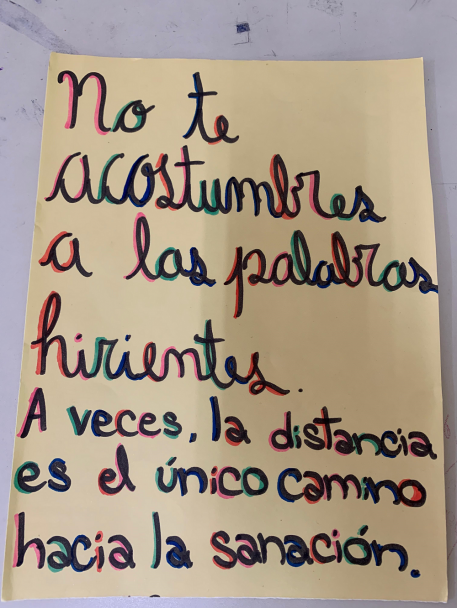 No te
acostumbres
a las palabras
hirientes.
A veces, la distancia
es el único camino
hacia la sanación.